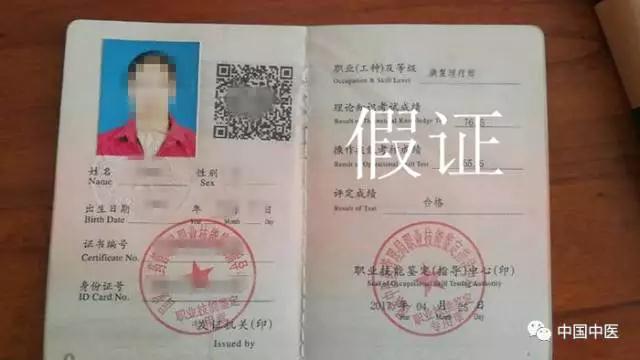 姓名
Name
性别
Sex
出生日期
Birth Date
年
Year
月
Month
日
Day
证书编号
Certificate No.
身份证号
ID Card No.
发证机关(印)
Issued by
职业技能鉴定
职业(工种)及等级
Occupation & Skill Level
康复理疗师
理论知识考试成绩
Result of Theoretical Knowledge Test
假证
操作技能考核成绩
Result of Operational Skill Test
评定成绩
Result of Test
合格
职业技能鉴定(指导)中心(印)
Seal of Occupational Skill Testing Authority
年
月
日
Year
Month
Day
中国中医